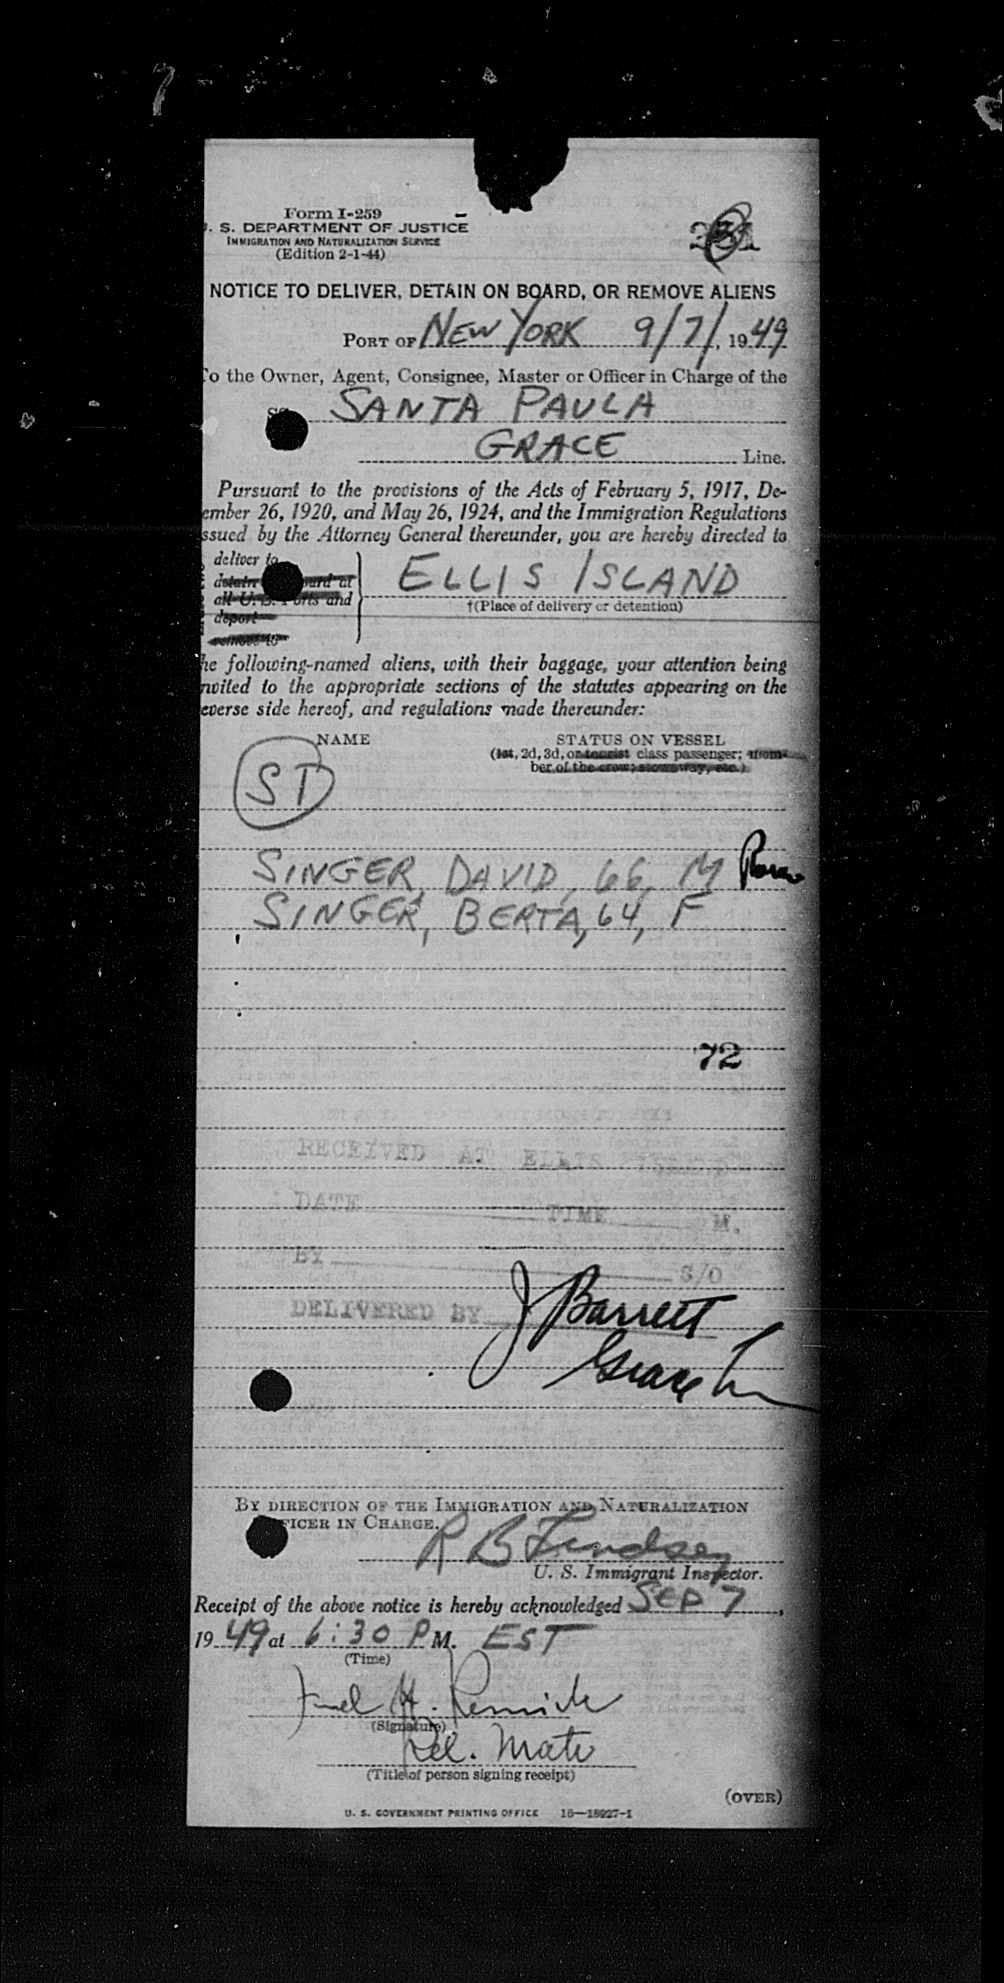 Form I-259
. S. DEPARTMENT OF JUSTICE
IMMIGRATION AND NATURALIZATION SERVICE
(Edition 2-1-44)
NOTICE TO DELIVER, DETAIN ON BOARD, OR REMOVE ALIENS
PORT OF NEW YORK 9/7/, 1949
o the Owner, Agent, Consignee, Master or Officer in Charge of the
SANTA PAULA
GRACE Line.
Pursuant to the provisions of the Acts of February 5, 1917, De-
ember 26, 1920, and May 26, 1924, and the Immigration Regulations
ssued by the Attorney General thereunder, you are hereby directed to
deliver to
detain board at
all U.S. Ports and
deport
remove to
ELLIS ISLAND
†(Place of delivery or detention)
he following-named aliens, with their baggage, your attention being
nvited to the appropriate sections of the statutes appearing on the
everse side hereof, and regulations made thereunder:
NAME STATUS ON VESSEL
(1st, 2d, 3d, or tourist class passenger; mem-
ber of the crew; stowaway, etc.)
ST
SINGER, DAVID, 66, M
SINGER, BERTA, 64, F
72
RECEIVED AT ELLIS ISLAND
DATE TIME M.
BY S/O
DELIVERED BY J Barrett
Grace
BY DIRECTION OF THE IMMIGRATION AND NATURALIZATION
FICER IN CHARGE.
R B Lindsey
U. S. Immigrant Inspector.
Receipt of the above notice is hereby acknowledged SEP 7,
1949 at 6:30 P M. EST
(Time)
H.
(Signature)
(Title of person signing receipt)
(OVER)
U. S. GOVERNMENT PRINTING OFFICE 16—18927-1